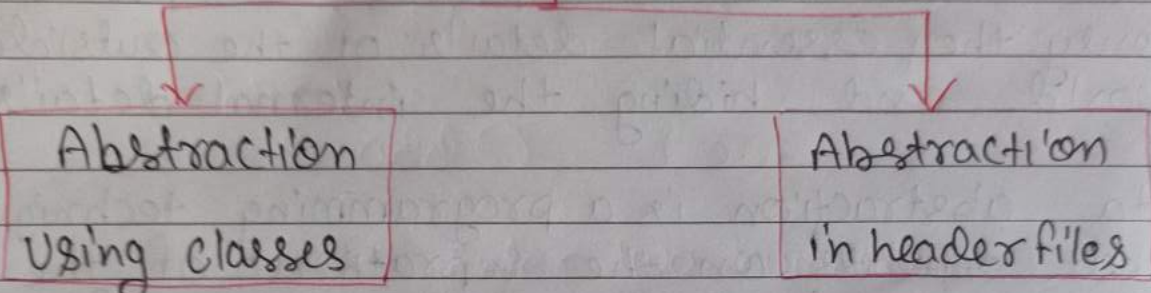 Abstraction
Using classes
Abstraction
in header files